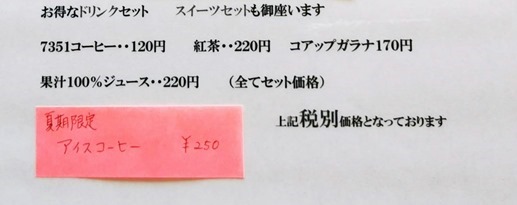 お得なドリンクセット　スイーツセットも御座います
7351コーヒー・・120円　紅茶・・220円　コアップガラナ170円
果汁100%ジュース・・220円　（全てセット価格）
夏期限定
アイスコーヒー　￥250
上記税別価格となっております